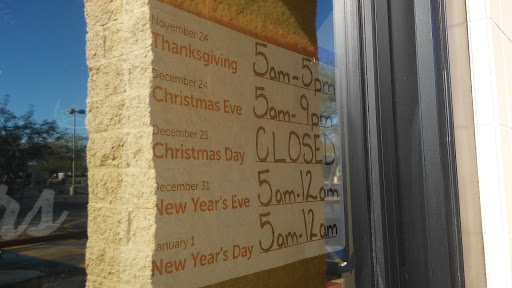 November 24
Thanksgiving 5am-5pm
December 24
Christmas Eve 5am-9pm
December 25
Christmas Day CLOSED
December 31
New Year's Eve 5am-12am
January 1
New Year's Day 5am-12am